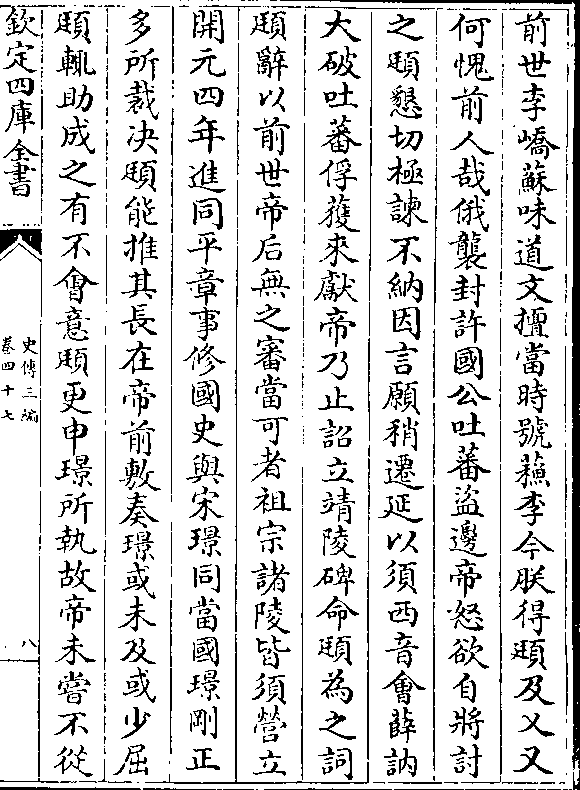 前世李嶠蘇味道文擅當時號蘇李今朕得頲及乂又
何愧前人哉俄襲封許國公吐蕃盜邊帝怒欲自將討
之頲懇切極諫不納因言願稍遷延以須西音會薛訥
大破吐蕃俘獲來獻帝乃止詔立靖陵碑命頲為之詞
頲辭以前世帝后無之審當可者祖宗諸陵皆須營立
開元四年進同平章事修國史與宋璟同當國璟剛正
多所裁决頲能推其長在帝前敷奏璟或未及或少屈
頲輒助成之有不㑹意頲更申璟所執故帝未嘗不從
欽定四庫全書
史傳三編
卷四十七
八